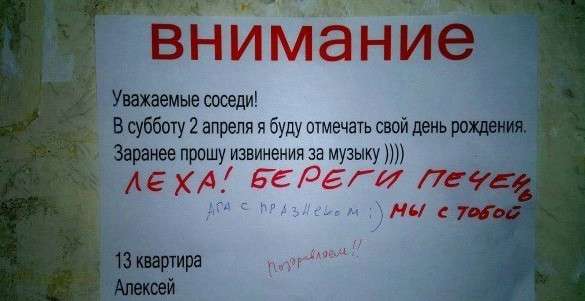 внимание
Уважаемые соседи!
В субботу 2 апреля я буду отмечать свой день рождения.
Заранее прошу извинения за музыку ))))
ЛЕХА! БЕРЕГИ ПЕЧЕНЬ
ДАА С ПРАЗНЕКОМ :) МЫ С ТОБОЙ
13 квартира Поздравляем!!
Алексей